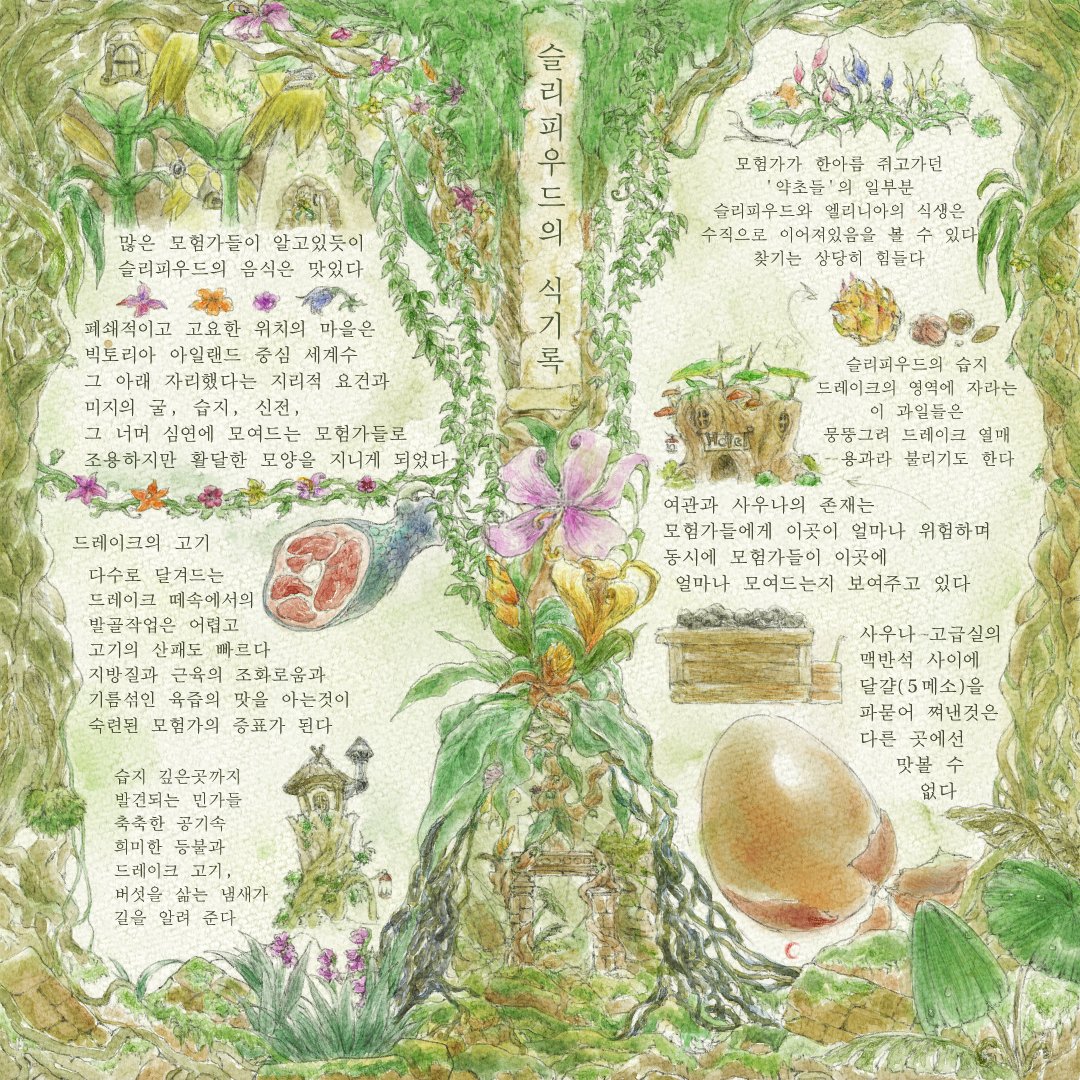 슬리피우드의 식기록
많은 모험가들이 알고있듯이
슬리피우드의 음식은 맛있다
폐쇄적이고 고요한 위치의 마을은
빅토리아 아일랜드 중심 세계수
그 아래 자리했다는 지리적 요건과
미지의 굴, 습지, 신전,
그 너머 심연에 모여드는 모험가들로
조용하지만 활달한 모양을 지니게 되었다
드레이크의 고기
다수로 달겨드는
드레이크 떼속에서의
발골작업은 어렵고
고기의 산패도 빠르다
지방질과 근육의 조화로움과
기름섞인 육즙의 맛을 아는것이
숙련된 모험가의 증표가 된다
습지 깊은곳까지
발견되는 민가들
축축한 공기속
희미한 등불과
드레이크 고기,
버섯을 삶는 냄새가
길을 알려 준다
모험가가 한아름 쥐고가던
'약초들'의 일부분
슬리피우드와 엘리니아의 식생은
수직으로 이어져있음을 볼 수 있다
찾기는 상당히 힘들다
슬리피우드의 습지
드레이크의 영역에 자라는
이 과일들은
뭉뚱그려 드레이크 열매
--용과라 불리기도 한다
HOTEL
여관과 사우나의 존재는
모험가들에게 이곳이 얼마나 위험하며
동시에 모험가들이 이곳에
얼마나 모여드는지 보여주고 있다
사우나 고급실의
맥반석 사이에
달걀(5메소)을
파묻어 쪄낸것은
다른 곳에선
맛볼 수
없다